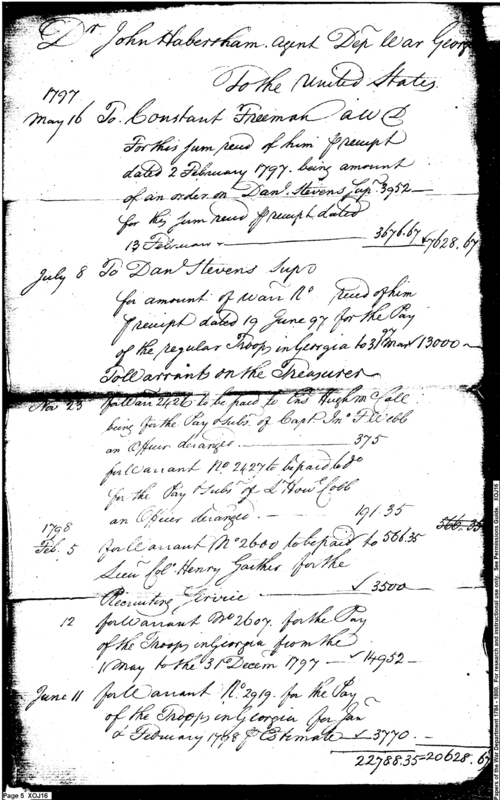 Dr John Habersham. agent Dep War Georg
To the United States.
1797
May 16 To Constant Freeman a W D
For this sum recd of him p receipt
dated 2 February 1797. being amount
of an order on Danl. Stevens Supr 3952 —
for this sum recd p receipt dated
13 February — 3676.67 7628.67
July 8 To Danl Stevens Supr
for amount of warrt No recd of him
p receipt dated 19 June 97 for the Pay
of the regular Troops in Georgia to 31 Mar 97 13000 —
To Warrants on the Treasurer
Nov 23 for Warr 2426 to be paid to Ens Hugh McCall
being for the Pay & subs. of Capt. Jno F Webb
an Officer deranged — 375
for Warrant No 2427 to be paid to do
for the Pay & subs of Lt Howl Cobb
an Officer deranged — 191.35
566.35
1798
Feb. 5 for Warrant No 2600 to be paid to 566.35
Lieut Col Henry Gaither for the
Recruiting Service — 3500
12 for Warrant No 2607. for the Pay
of the Troops in Georgia from the
1 May to the 31 Decem 1797 — 14952 —
June 11 for Warrant No. 2919. for the Pay
of the Troops in Georgia for Jany
& February 1798 p Estimate 3770. —
22788.35 20628.67
Page 5 XOJ16